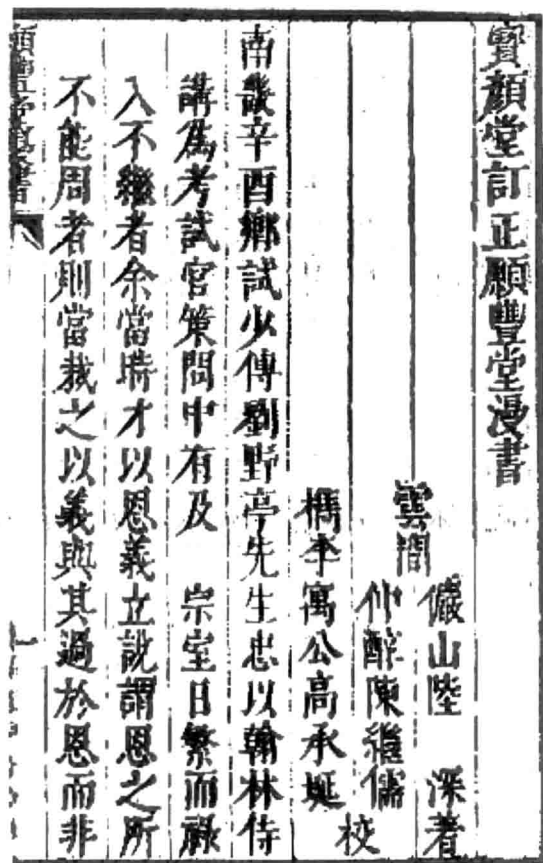 寶顏堂訂正願豐堂漫書
雲間
儼山陸　深著
仲醇陳繼儒
檇李寓公高承埏
校
南畿辛酉鄉試少傅劉野亭先生忠以翰林侍
講爲考試官策問中有及　宗室日繁而祿
入不繼者余當時才以恩義立說謂恩之所
不能周者則當裁之以義與其過於恩而非
願豐堂漫書
一